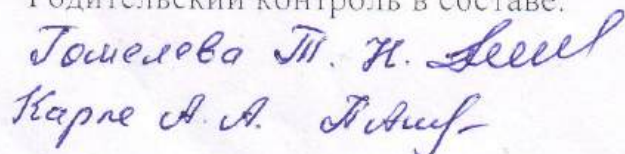 Родительский контроль в составе:
Гомелева Т. Н.
Карпе А. А.